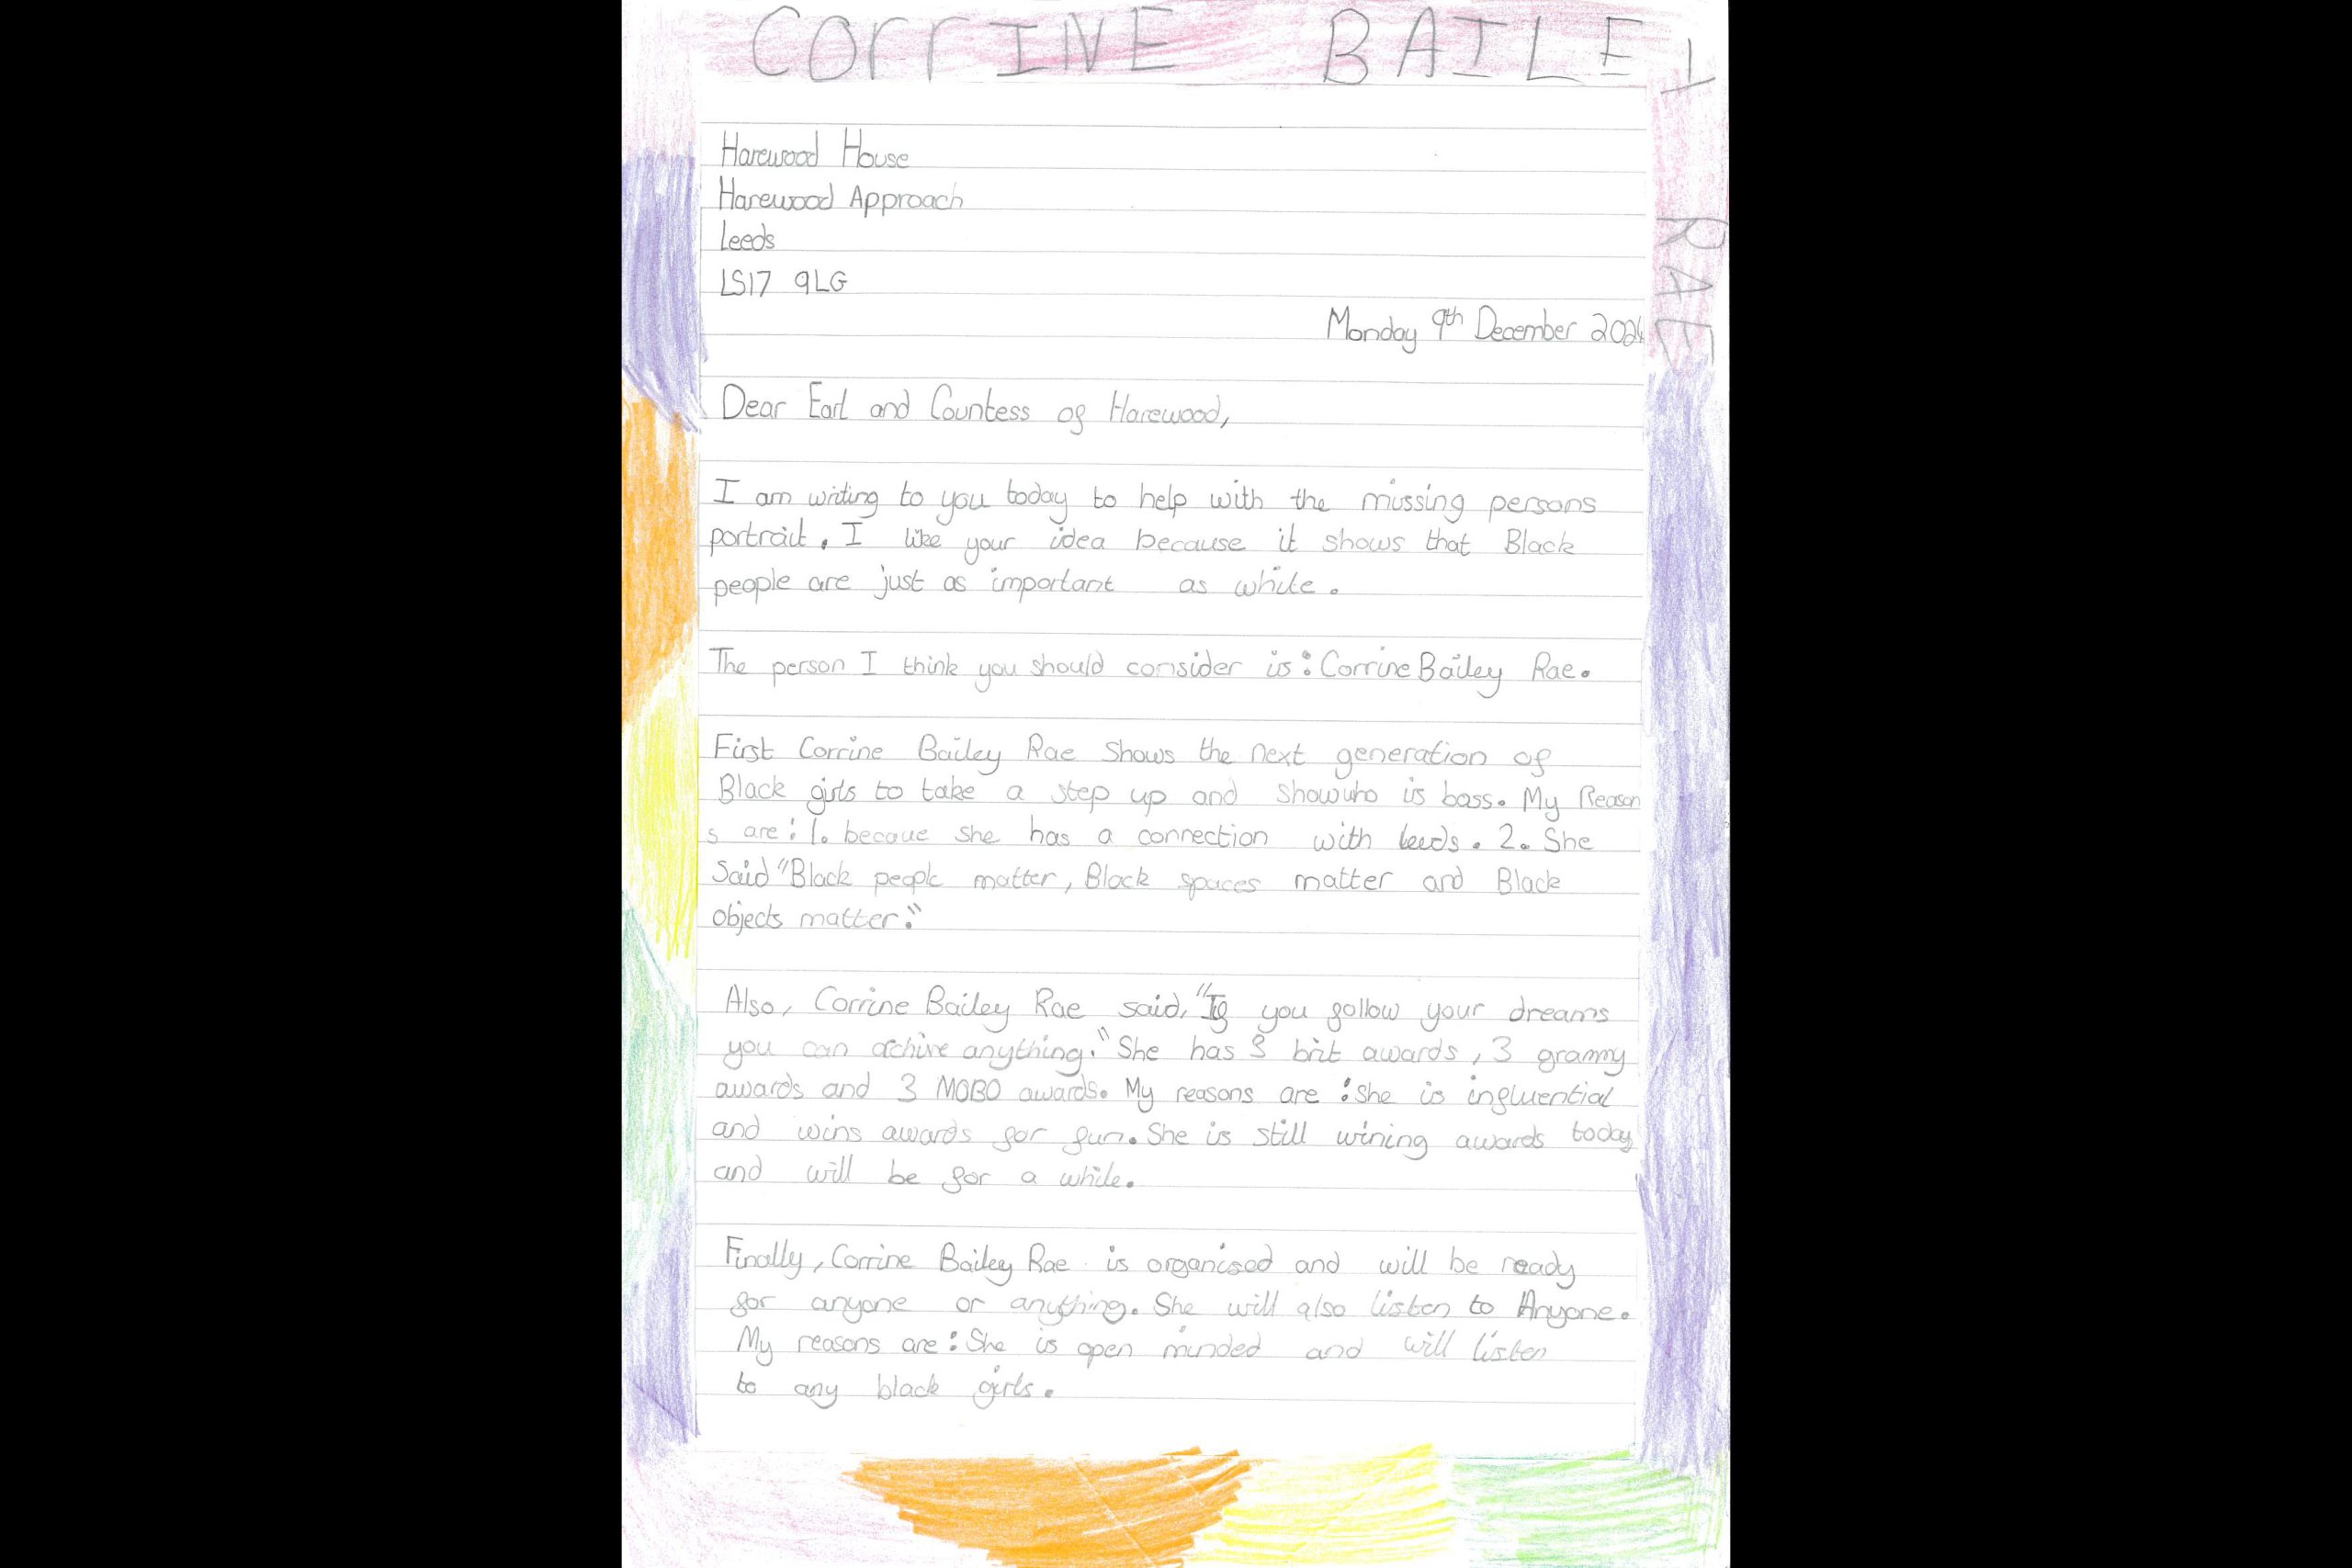 CorrINE BAILEY RAE
Harewood House
Harewood Approach
Leeds
LS17 9LG
Monday 9th December 2024
Dear Earl and Countess of Harewood,
I am writing to you today to help with the missing persons
portrait. I like your idea because it shows that Black
people are just as important as white.
The person I think you should consider is: Corrine Bailey Rae.
First Corrine Bailey Rae shows the next generation of
Black girls to take a step up and show who is boss. My Reason
s are: 1. becaue she has a connection with leeds. 2. She
said "Black people matter, Black spaces matter and Black
objects matter."
Also, Corrine Bailey Rae said, "If you follow your dreams
you can achive anything." She has 3 brit awards, 3 grammy
awards and 3 MOBO awards. My reasons are: She is influential
and wins awards for fun. She is still wining awards today
and will be for a while.
Finally, Corrine Bailey Rae is organised and will be ready
for anyone or anything. She will also listen to Anyone.
My reasons are: She is open minded and will listen
to any black girls.